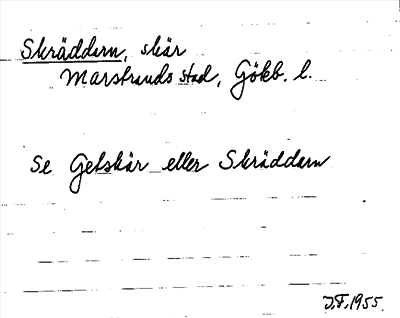 Skräddarn, skär
Marstrands stad, Götb. l.
Se Getskär eller Skräddarn
J.F. 1955.